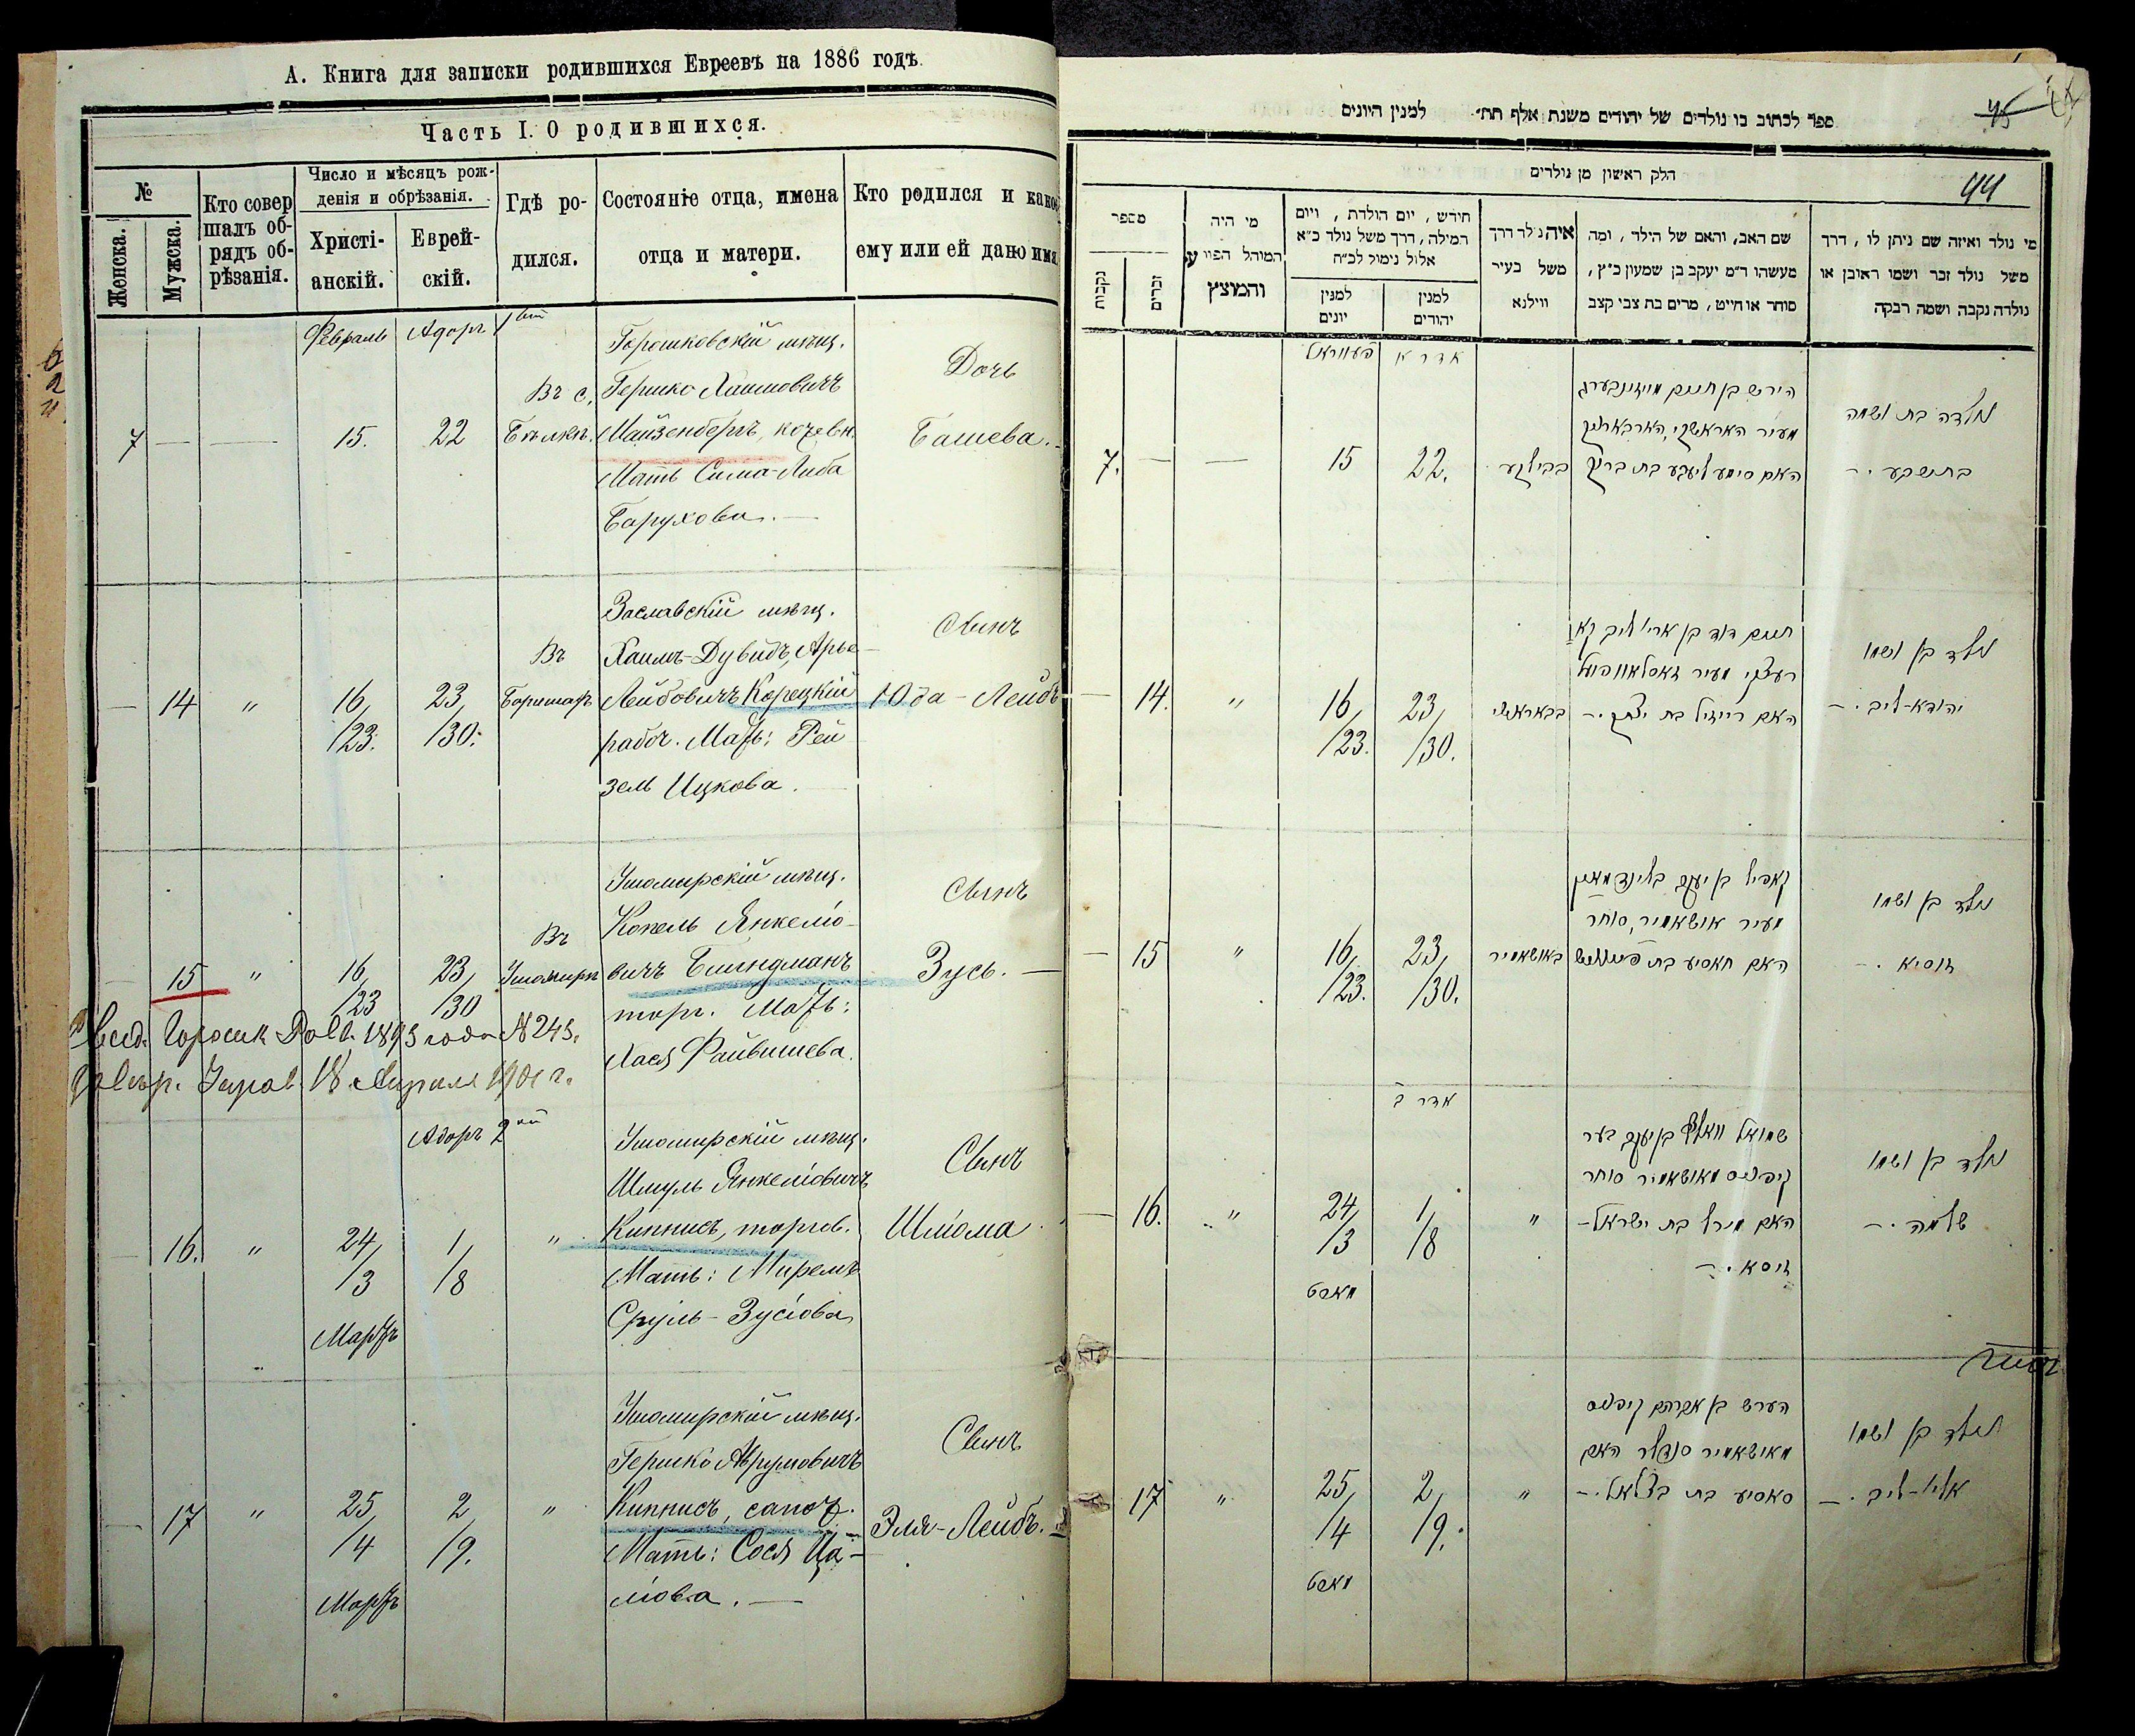 А. Книга для записки родившихся Евреевъ на 1886 годъ.
Часть I. О родившихся.
№
Женска.
Мужска.
Кто совер
шалъ об-
рядъ об-
рѣзанія.
Число и мѣсяцъ рож-
денія и обрѣзанія.
Христі-
анскій.
Еврей-
скій.
Гдѣ ро-
дился.
Состояніе отца, имена
отца и матери.
Кто родился и како
ему или ей дано имя
Февраль
Адоръ 1
7
15.
22
Въ с.
Бѣлкѣ.
Горошковскій мѣщ.
Гершко Хаимовичъ
Майзенбергъ, кочевн.
Мать Сима-Либа
Барухова.
Дочь
Башева.
14
"
16/23.
23/30.
Въ
Заславскій мѣщ.
Хаимъ-Дувидъ, Арье-
Лейбовичъ Корецкій
рабоч. Мать: Рей
зель Ицкова.
Сынъ
Юда-Лейбъ
15
"
16/23
23/30
Въ
Ушомирѣ
Ушомирскій мѣщ.
Копель Янкеліо-
вичъ Блиндманъ
торг. Мать:
Хася Файвишева.
Сынъ
Зусь.
1893 года № 243.
18 Апреля 1901 г.
Адоръ 2
16.
"
24/3
Мартъ
1/8
"
Ушомирскій мѣщ.
Шмуль Янкеліовичъ
Кипнисъ, торгов.
Мать: Мирель
Сруль-Зусіова
Сынъ
Шліома
17
"
25/4
Мартъ
2/9.
"
Ушомирскій мѣщ.
Гершко Аврумовичъ
Кипнисъ, сапож.
Мать: Сося Ца-
ліова.
Сынъ
Эля-Лейбъ.
ספר לכתוב בו נולדים של יהודים משנת אלף תת״ למנין היונים
45
44
חלק ראשון מן נולדים
מספר
נקבות
זכרים
מי היה
המוהל הפורע
והמוצץ
חידש, יום הולדת, ויום
המילה, דרך משל נולד כ״א
אלול נימול לכ״ח
למנין
יונים
למנין
יהודים
איה נולד דרך
משל בעיר
ווילנא
שם האב, והאם של הילד, ומה
מעשהו ד״מ יעקב בן שמעון כ״ץ,
סוחר או חייט, מרים בת צבי קצב
מי נולד ואיזה שם ניתן לו, דרך
משל נולד זכר ושמו ראובן או
נולדה נקבה ושמה רבקה
פעווראל
אדר א
7.
15
22.
בבילקע
הירש בן חיים מייזינבערג
האם סימע ליבע בת ברוך
נולדה בת ושמה
בתשבע
14.
"
16/23.
23/30.
חיים דוד בן ארי׳ ליב קא
רעצקי מעיר זאסלאוו פועל
האם רייזיל בת יצחק
נולד בן ושמו
יהודא-ליב
15
"
16/23.
23/30.
באושאמיר
קאפיל בן יעקב בלינדמאן
מעיר אושאמיר, סוחר
האם חאסיע בת פייוויש
נולד בן ושמו
זוסיא
אדר ב
16.
"
24/3
מארט
1/8
"
שמואל וואלף בן יעקב בער
קיפניס מאושאמיר סוחר
האם מירל בת ישראל-
זוסא
נולד בן ושמו
שלמה
17
"
25/4
מארט
2/9.
"
הערש בן אברהם קיפניס
מאושאמיר סנדלר האם
סאסיע בת בצלאל
נולד בן ושמו
אלי׳-ליב